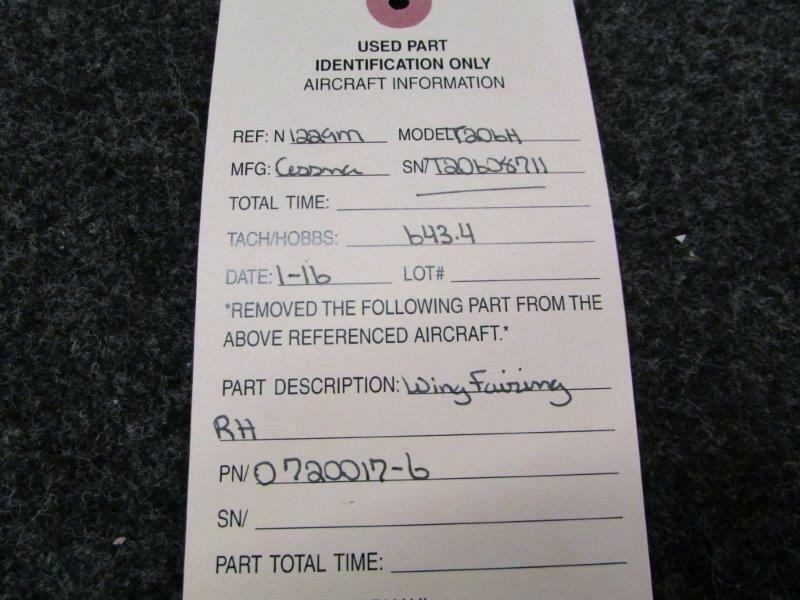 USED PART
IDENTIFICATION ONLY
AIRCRAFT INFORMATION
REF: N 1229M MODEL T206H
MFG: Cessna SN/ T20608711
TOTAL TIME:
TACH/HOBBS: 643.4
DATE: 1-16 LOT#
*REMOVED THE FOLLOWING PART FROM THE
ABOVE REFERENCED AIRCRAFT.*
PART DESCRIPTION: Wing Fairing
RH
PN/ 0720017-6
SN/
PART TOTAL TIME: